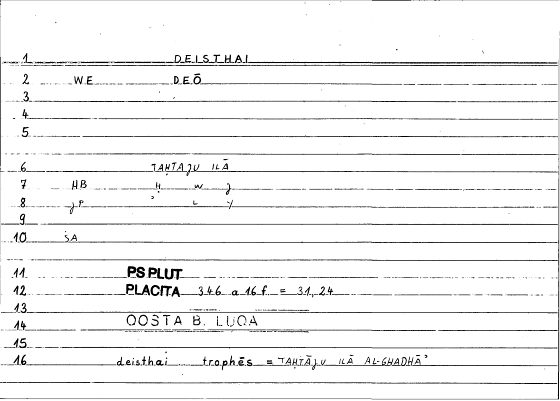 1 DEISTHAI
2 WE DEŌ
3
4
5
6 TAḤTAJU ILĀ
7 HB Ḥ W J
8 JP ʾ L Y
9
10 SA
11 PS PLUT
12 PLACITA 346 a 16 f = 31, 24
13
14 QOSTA B. LUQA
15
16 deisthai trophēs = TAḤTĀJU ILĀ AL-GHADHĀʾ